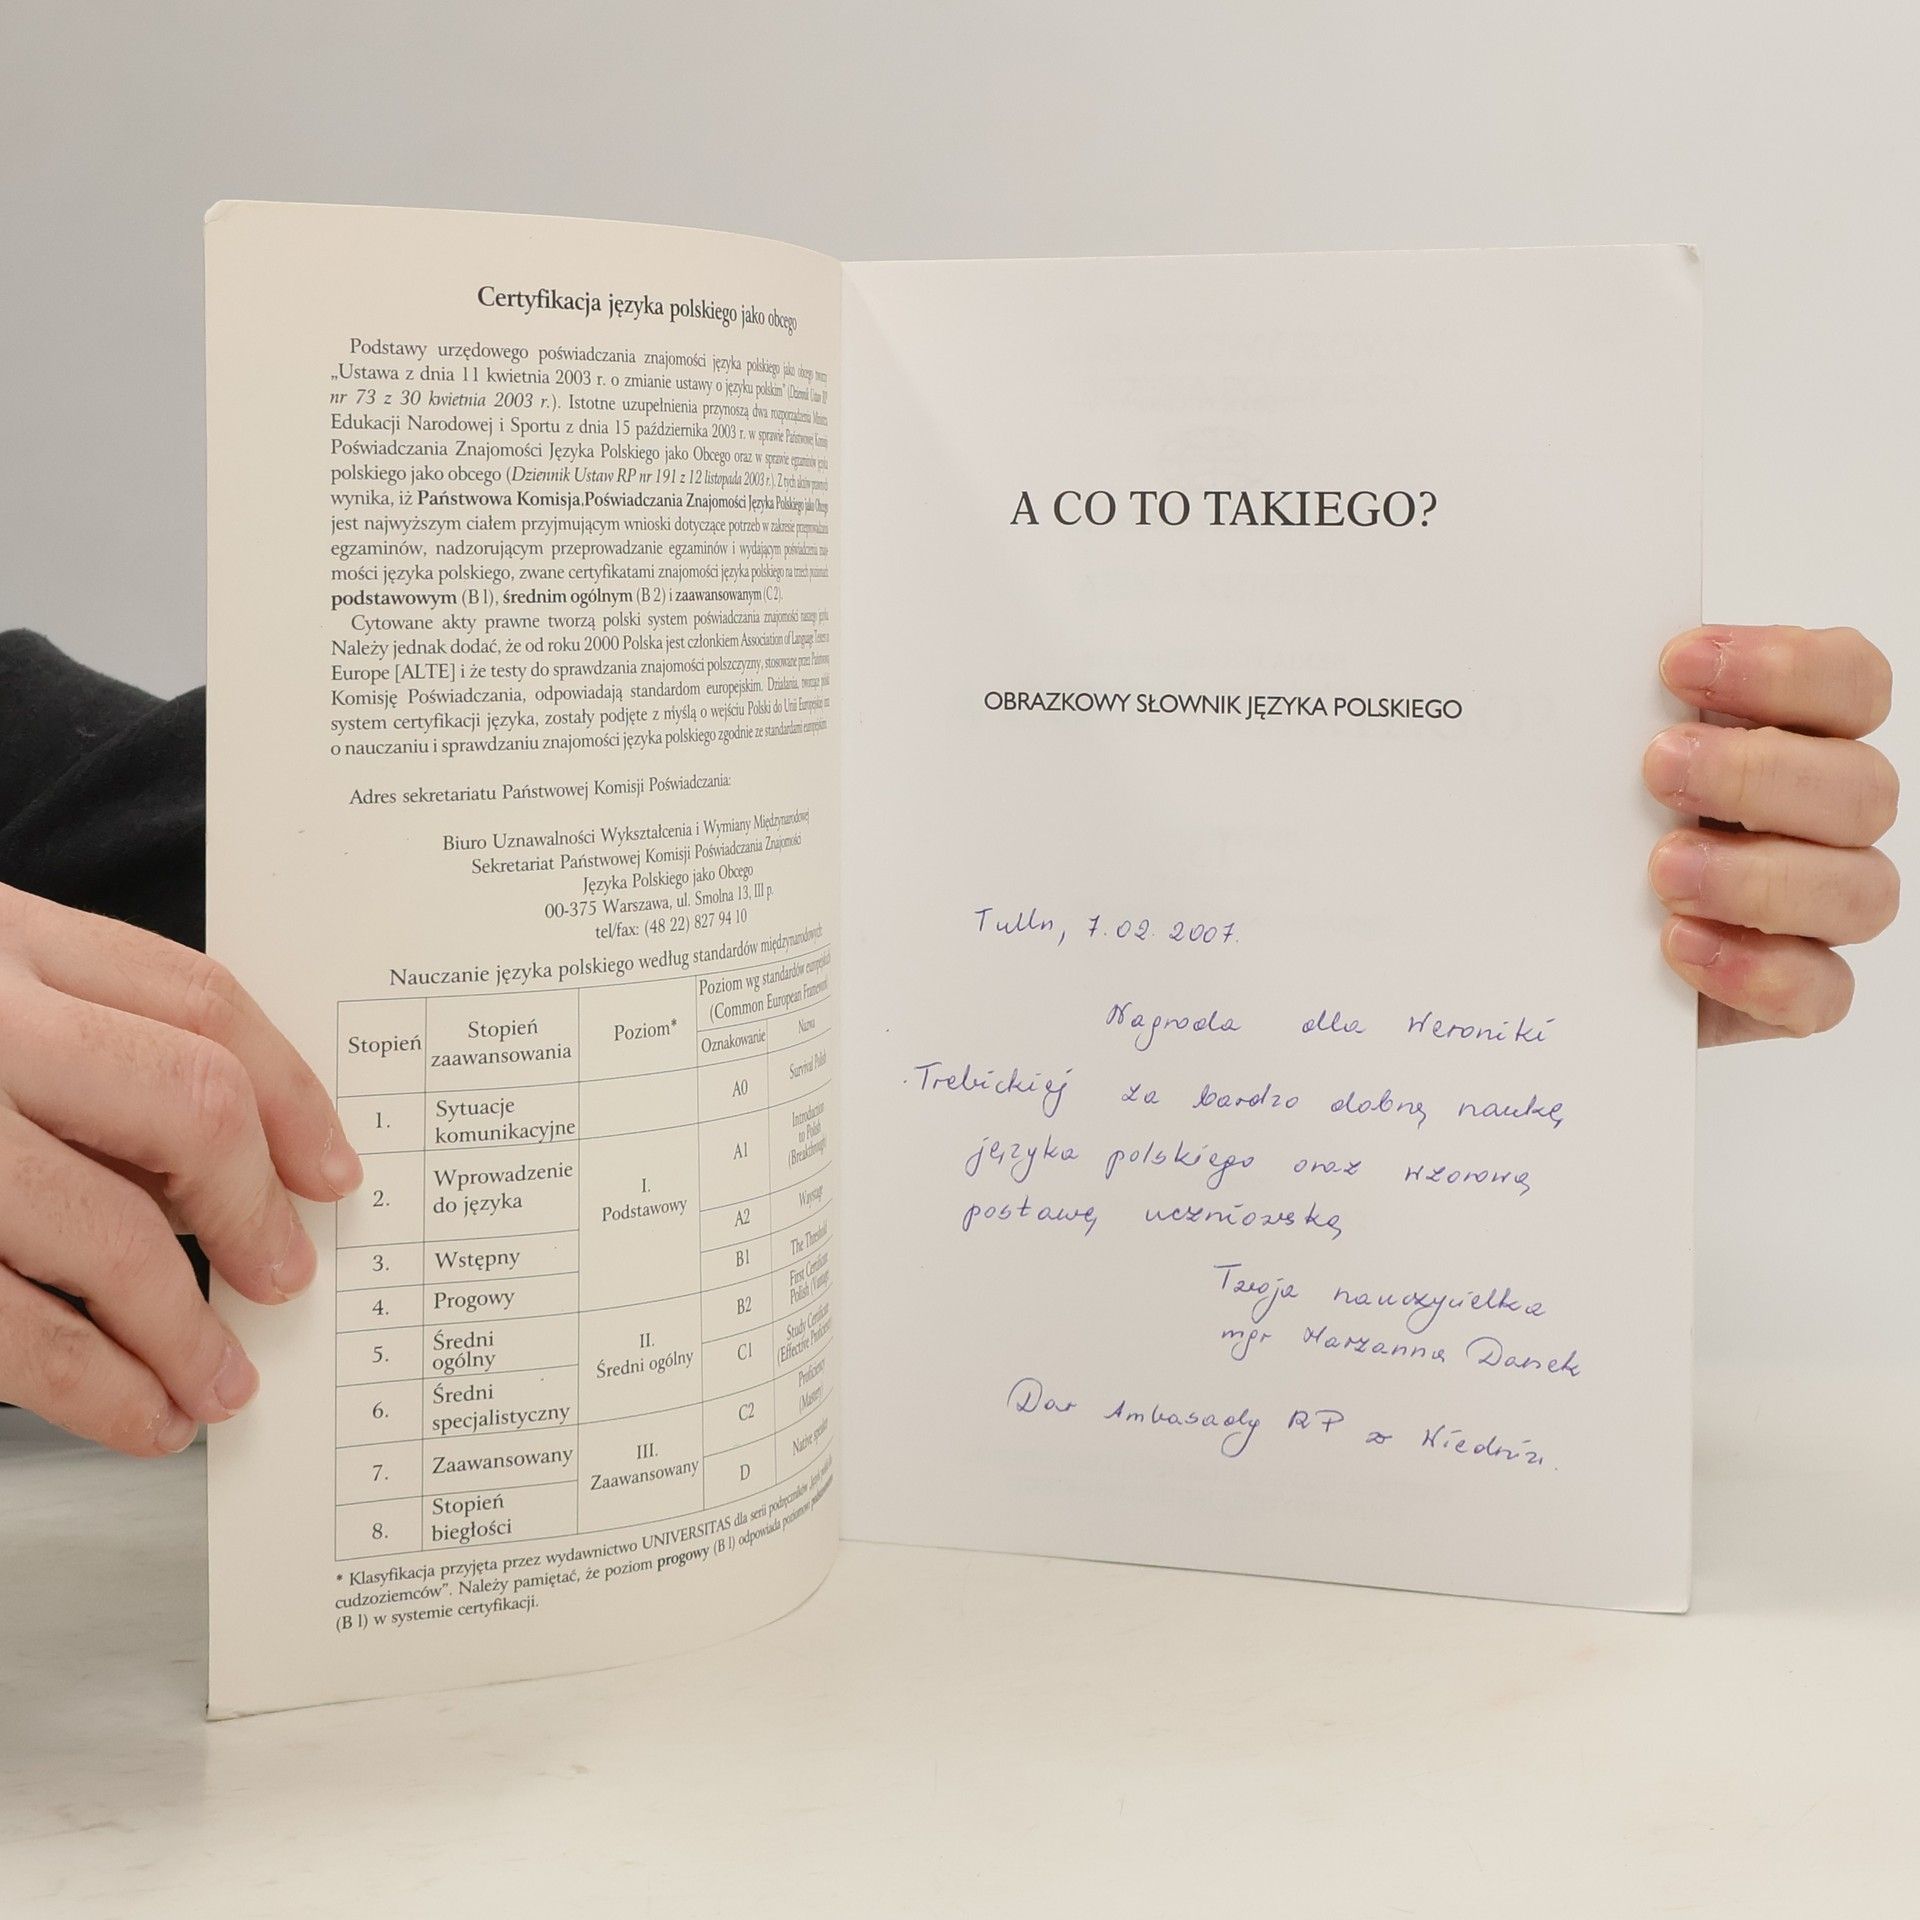 Certyfikacja języka polskiego jako obcego
Podstawy urzędowego poświadczania znajomości języka polskiego jako obcego tworzy
„Ustawa z dnia 11 kwietnia 2003 r. o zmianie ustawy o języku polskim” (Dziennik Ustaw RP
nr 73 z 30 kwietnia 2003 r.). Istotne uzupełnienia przynoszą dwa rozporządzenia Ministra
Edukacji Narodowej i Sportu z dnia 15 października 2003 r. w sprawie Państwowej Komisji
Poświadczania Znajomości Języka Polskiego jako Obcego oraz w sprawie egzaminów języka
polskiego jako obcego (Dziennik Ustaw RP nr 191 z 12 listopada 2003 r.). Z tych aktów prawnych
wynika, iż Państwowa Komisja Poświadczania Znajomości Języka Polskiego jako Obcego
jest najwyższym ciałem przyjmującym wnioski dotyczące potrzeb w zakresie przeprowadzania
egzaminów, nadzorującym przeprowadzanie egzaminów i wydającym poświadczenia znajo-
mości języka polskiego, zwane certyfikatami znajomości języka polskiego na trzech poziomach:
podstawowym (B1), średnim ogólnym (B2) i zaawansowanym (C2).
Cytowane akty prawne tworzą polski system poświadczania znajomości naszego języka.
Należy jednak dodać, że od roku 2000 Polska jest członkiem Association of Language Testers in
Europe [ALTE] i że testy do sprawdzania znajomości polszczyzny, stosowane przez Państwową
Komisję Poświadczania, odpowiadają standardom europejskim. Działania, tworzące polski
system certyfikacji języka, zostały podjęte z myślą o wejściu Polski do Unii Europejskiej oraz
o nauczaniu i sprawdzaniu znajomości języka polskiego zgodnie ze standardami europejskim
Adres sekretariatu Państwowej Komisji Poświadczania:
Biuro Uznawalności Wykształcenia i Wymiany Międzynarodowej
Sekretariat Państwowej Komisji Poświadczania Znajomości
Języka Polskiego jako Obcego
00-375 Warszawa, ul. Smolna 13, III p.
tel/fax: (48 22) 827 94 10
Nauczanie języka polskiego według standardów międzynarodowych:
Stopień Stopień zaawansowania Poziom* Poziom wg standardów europejskich (Common European Framework)
Oznakowanie Nazwa
1. Sytuacje komunikacyjne A0 Survival Polish
2. Wprowadzenie do języka I. Podstawowy A1 Introduction to Polish (Breakthrough)
3. Wstępny A2 Waystage
4. Progowy B1 The Threshold
5. Średni ogólny II. Średni ogólny B2 First Certificate Polish (Vantage)
6. Średni specjalistyczny C1 Study Certificate (Effective Proficiency)
7. Zaawansowany III. Zaawansowany C2 Proficiency (Mastery)
8. Stopień biegłości D Native speaker
* Klasyfikacja przyjęta przez wydawnictwo UNIVERSITAS dla serii podręczników „Język polski dla
cudzoziemców”. Należy pamiętać, że poziom progowy (B1) odpowiada poziomowi podstawowemu
(B1) w systemie certyfikacji.
A CO TO TAKIEGO?
OBRAZKOWY SŁOWNIK JĘZYKA POLSKIEGO
Tulln, 7.02.2007.
Nagroda dla Weroniki
Trebickiej za bardzo dobrą naukę
języka polskiego oraz wzorową
postawę uczniowską
Twoja nauczycielka
mgr Marzanna Danek
Dar Ambasady RP w Wiedniu.